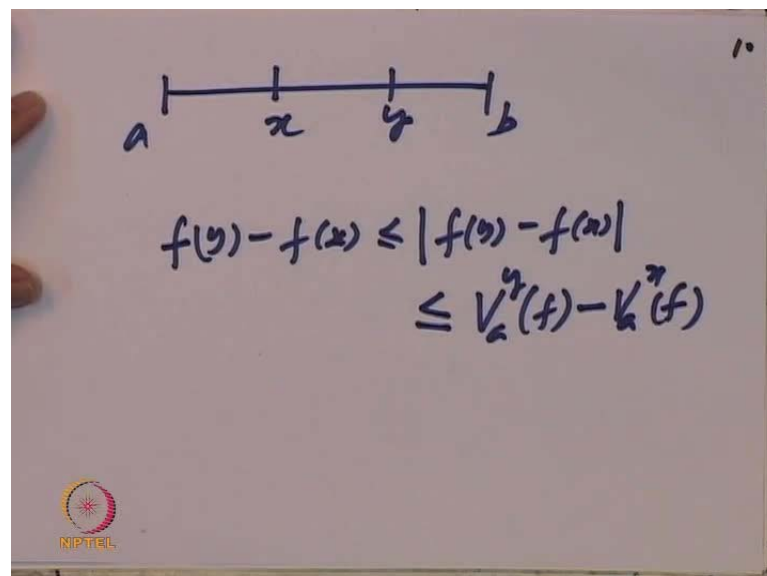 10
a x y b
f(y) - f(x) ≤ |f(y) - f(x)|
≤ V_a^y(f) - V_a^x(f)
NPTEL